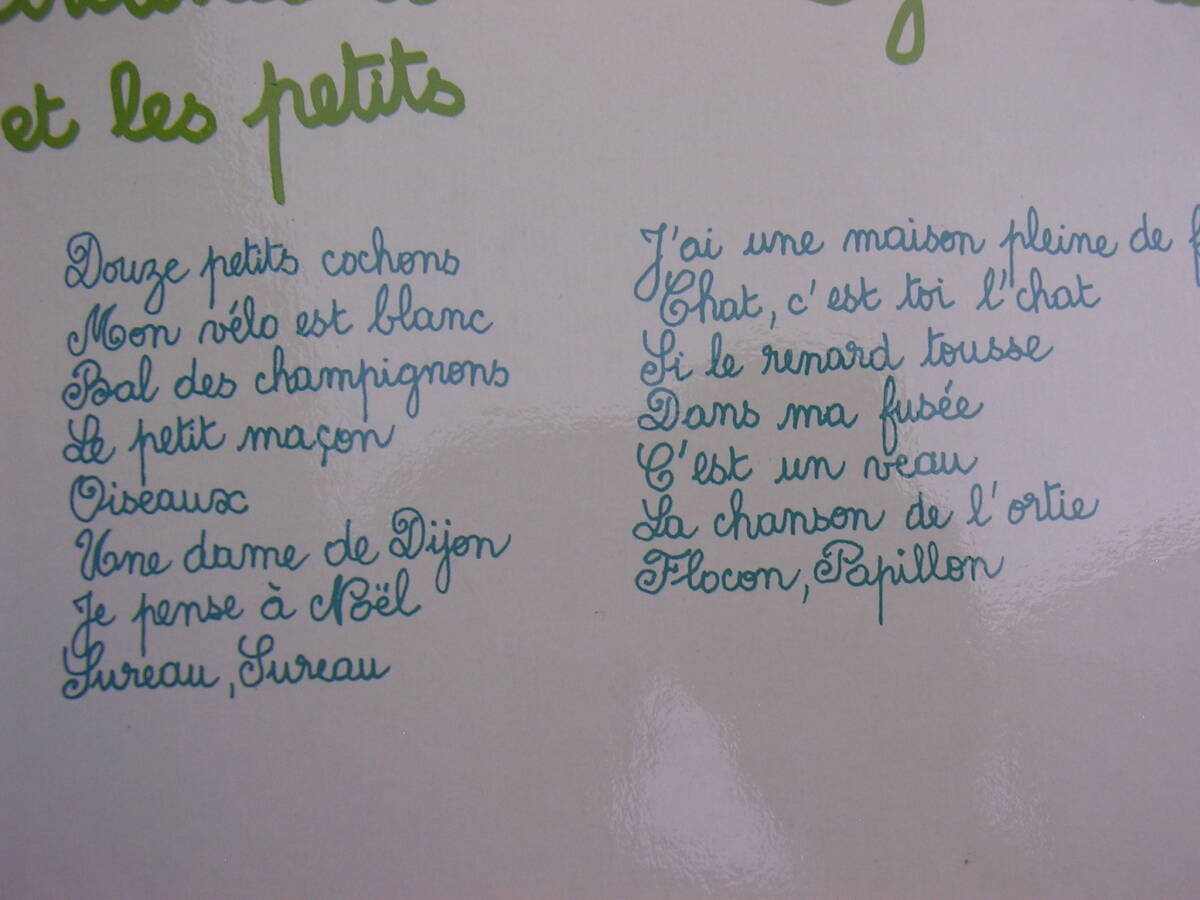 et les petits
Douze petits cochons
Mon vélo est blanc
Bal des champignons
Le petit maçon
Oiseaux
Une dame de Dijon
Je pense à Noël
Sureau, Sureau
J'ai une maison pleine de
Chat, c'est toi l'chat
Si le renard tousse
Dans ma fusée
C'est un veau
La chanson de l'ortie
Flocon, Papillon